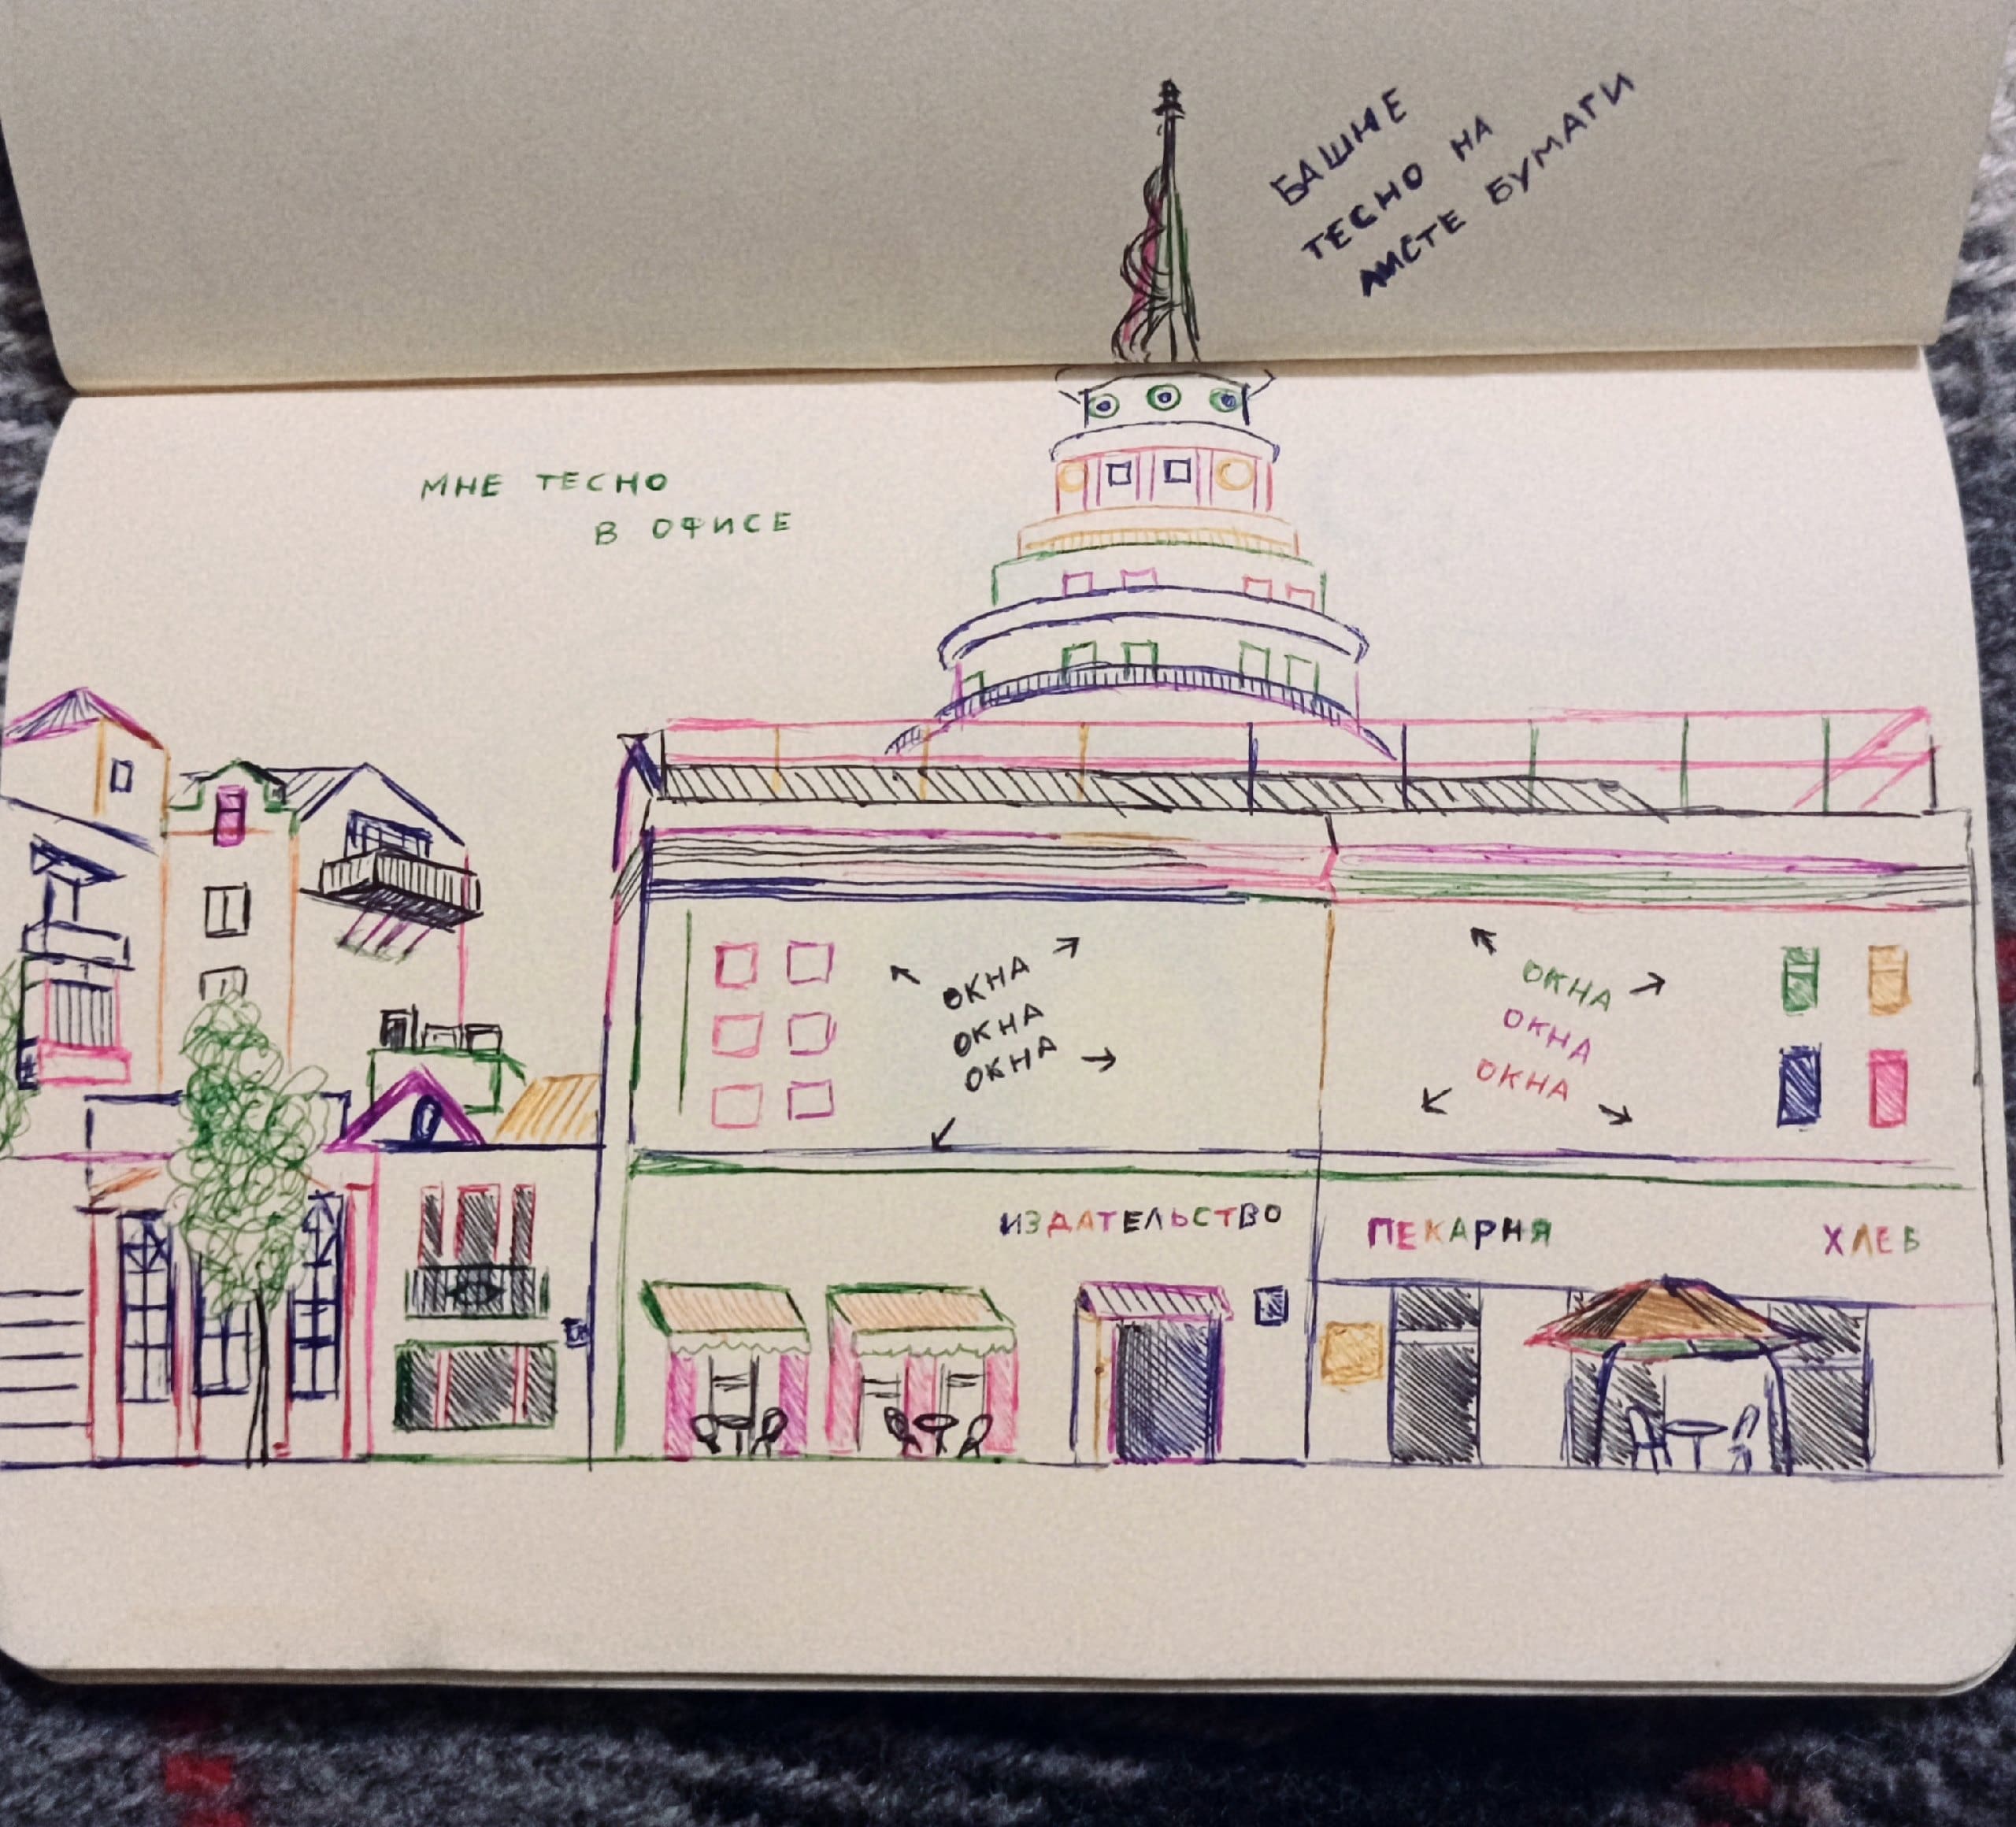 БАШНЕ
ТЕСНО НА
ЛИСТЕ БУМАГИ
МНЕ ТЕСНО
В ОФИСЕ
ОКНА
ОКНА
ОКНА
ОКНА
ОКНА
ОКНА
ИЗДАТЕЛЬСТВО
ПЕКАРНЯ
ХЛЕБ